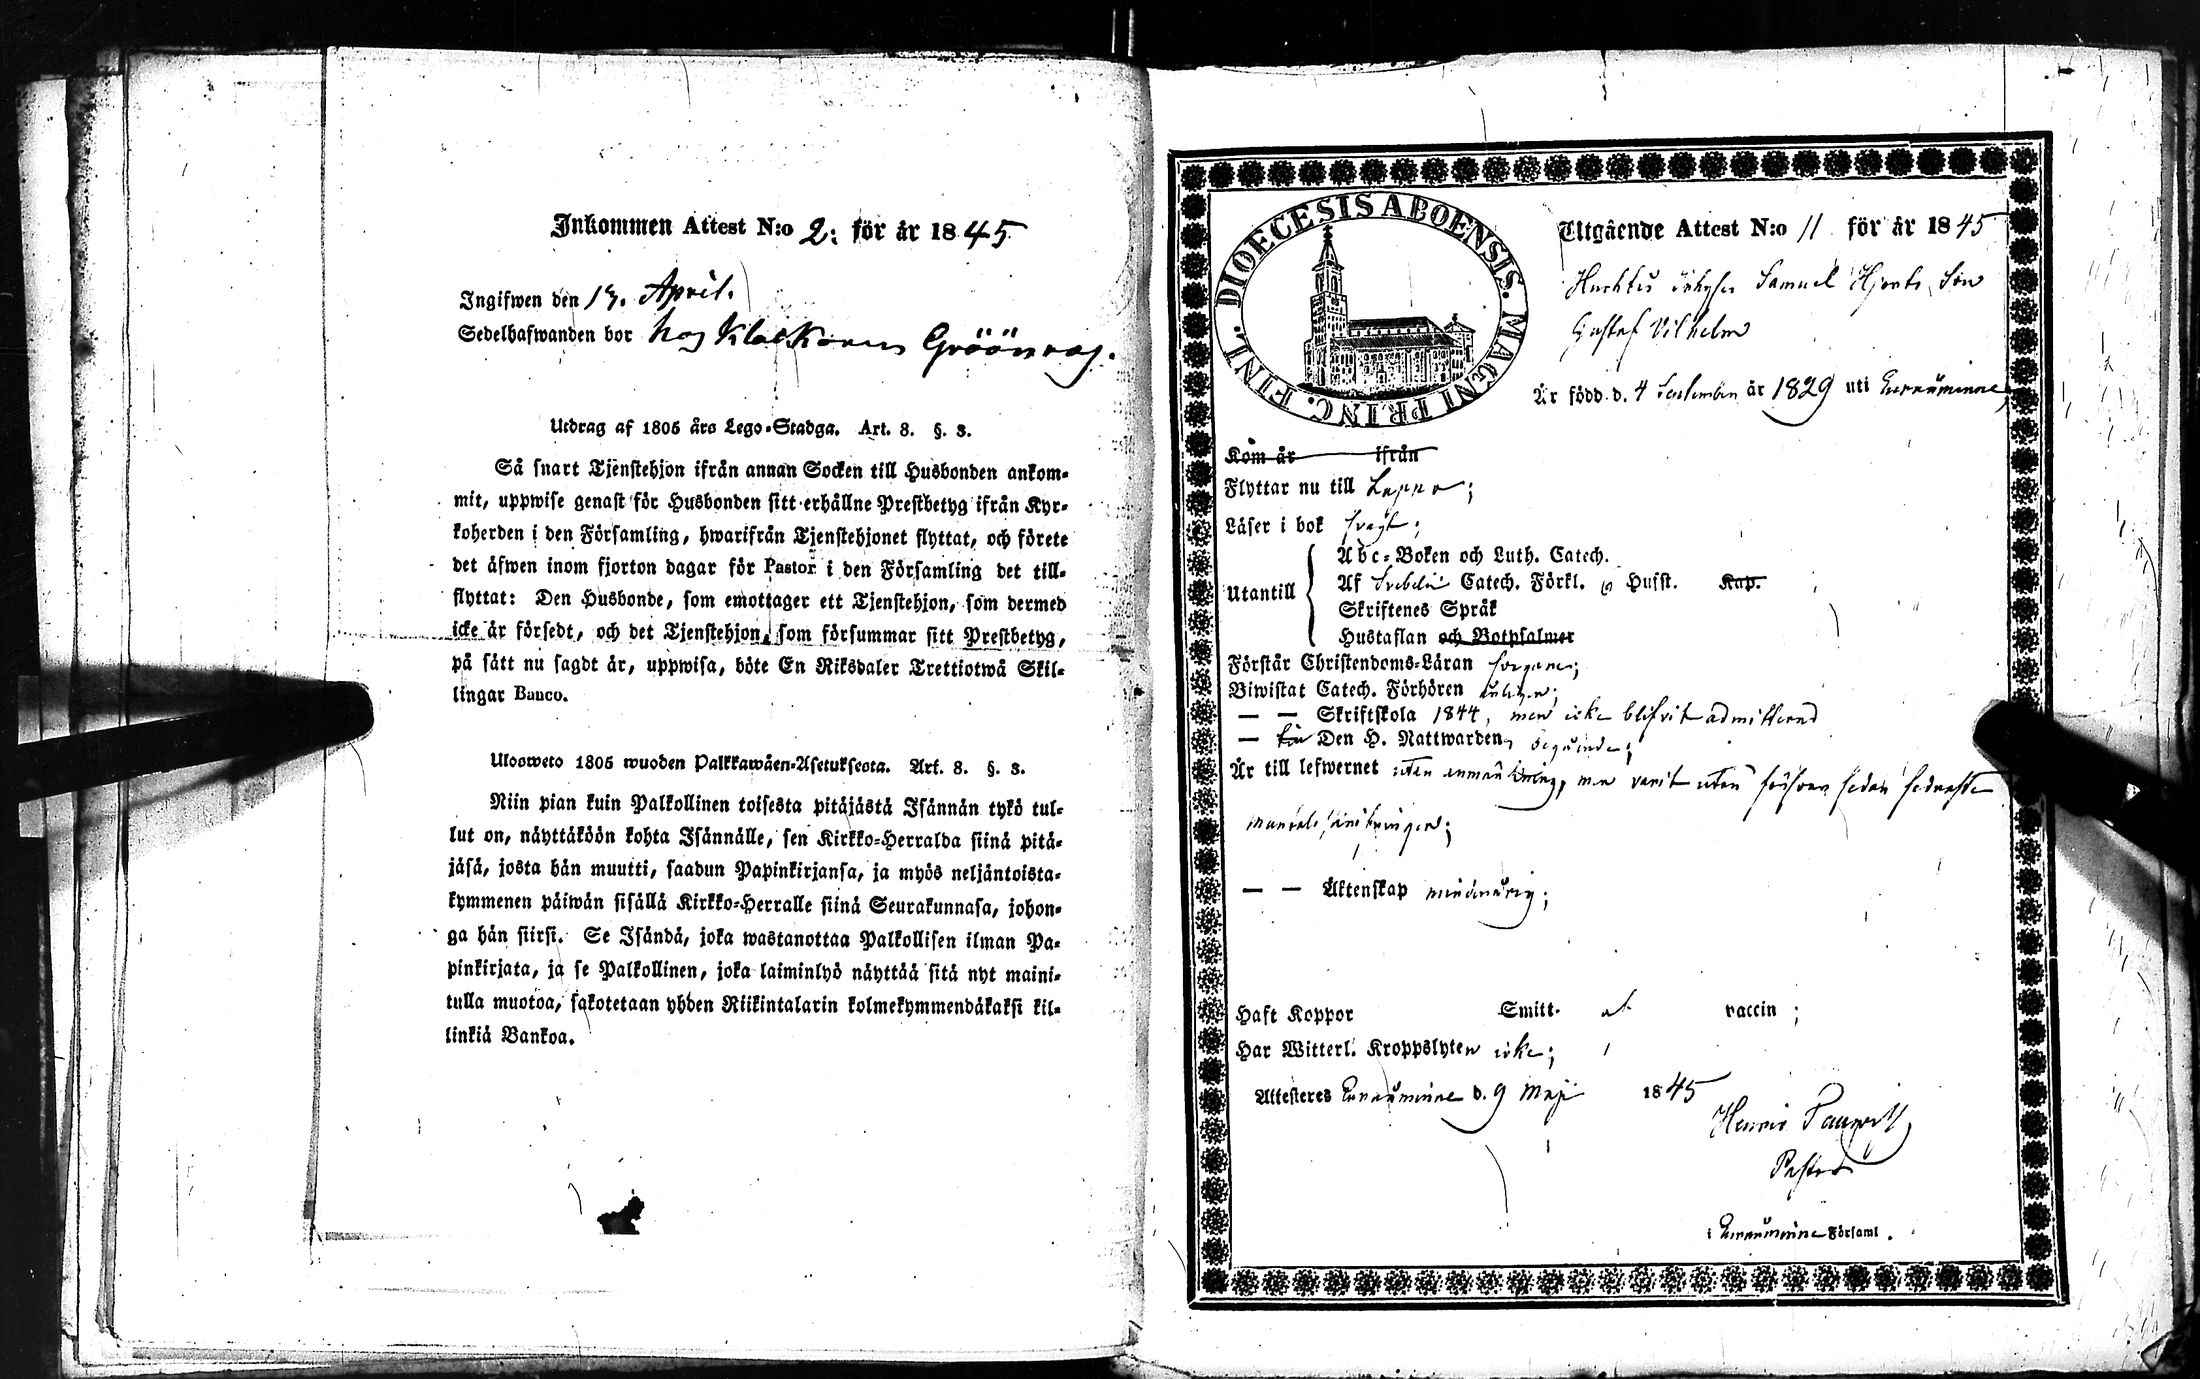 Inkommen Attest N:o 2: för år 1845
Ingifwen den 13. April.
Sedelhafwanden bor hos Klockaren Gröönroos.
Utdrag af 1805 års Lego-Stadga. Art. 8. §. 3.
Så snart Tjenstehjon ifrån annan Socken till Husbonden ankom-
mit, uppwise genast för Husbonden sitt erhållne Prestbetyg ifrån Kyr-
koherden i den Församling, hwarifrån Tjenstehjonet flyttat, och förete
det äfwen inom fjorton dagar för Pastor i den Församling det till-
flyttat: Den Husbonde, som emottager ett Tjenstehjon, som dermed
icke är försedt, och det Tjenstehjon, som försummar sitt Prestbetyg,
på sätt nu sagdt är, uppwisa, böte En Riksdaler Trettiotwå Skil-
lingar Banco.
Ulosweto 1805 wuoden Palkkawäen-Asetuksesta. Art. 8. §. 3.
Niin pian kuin Palkollinen toisesta pitäjästä Isännän tykö tul-
lut on, näyttäköön kohta Isännälle, sen Kirkko-Herralda siinä pitä-
jäsä, josta hän muutti, saadun Papinkirjansa, ja myös neljäntoista-
kymmenen päiwän sisällä Kirkko-Herralle siinä Seurakunnasa, johon-
ga hän siirsi. Se Isändä, joka wastanottaa Palkollisen ilman Pa-
pinkirjata, ja se Palkollinen, joka laiminlyö näyttää sitä nyt maini-
tulla muotoa, sakotetaan yhden Riikintalarin kolmekymmendäkaksi kil-
linkiä Bankoa.
DIOECESIS ABOENSIS. MAGNI PRINC. FINL.
Utgående Attest N:o 11 för år 1845
Samuel Hjorts Son
Gustaf Vilhelm
Är född d. 4 September år 1829 uti Euraåminne,
Kom år ifrån
Flyttar nu till Lappo;
Läser i bok svagt;
Abc-Boken och Luth. Catech.
Utantill Af Svebelii Catech. Förkl. o Husst. Kap.
Skriftenes Språk
Hustaflan och Botpsalmer
Förstår Christendoms-Läran
Biwistat Catech. Förhören
— — Skriftskola 1844, men icke blifvit admitterad
— Den H. Nattwarden begående;
Är till lefwernet utan anmärkning, men varit utan försvar sedan sednaste
mantals skrifningen;
— — Äktenskap minderårig;
Haft Koppor Smitt. af vaccin;
Har Witterl. Kroppslyten icke;
Attesteres Euraåminne d. 9 Maji 1845
Pastor
i Euraåminne Församl.